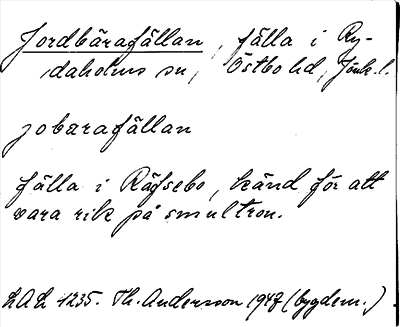 Jordbärafällan, fälla i Ry-
daholms sn, Östbo hd, Jönk. l.
jobarafällan
fälla i Räfsebo, känd för att
vara rik på smultron.
LAL 1235. Th. Andersson 1947 (bygdem.)